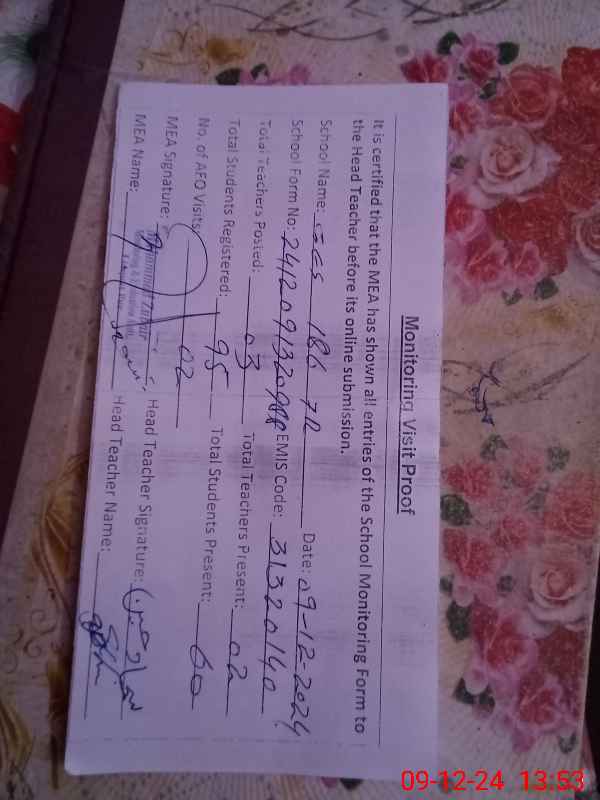 Monitoring Visit Proof
It is certified that the MEA has shown all entries of the School Monitoring Form to
the Head Teacher before its online submission.
School Name: 186 7R Date: 09-12-2024
School Form No: EMIS Code: 31320140
Total Teachers Posted: 03 Total Teachers Present: 02
Total Students Registered: 95 Total Students Present: 60
No. of AEO Visits: 02
MEA Signature: Head Teacher Signature:
MEA Name: Head Teacher Name:
09-12-24 13:53